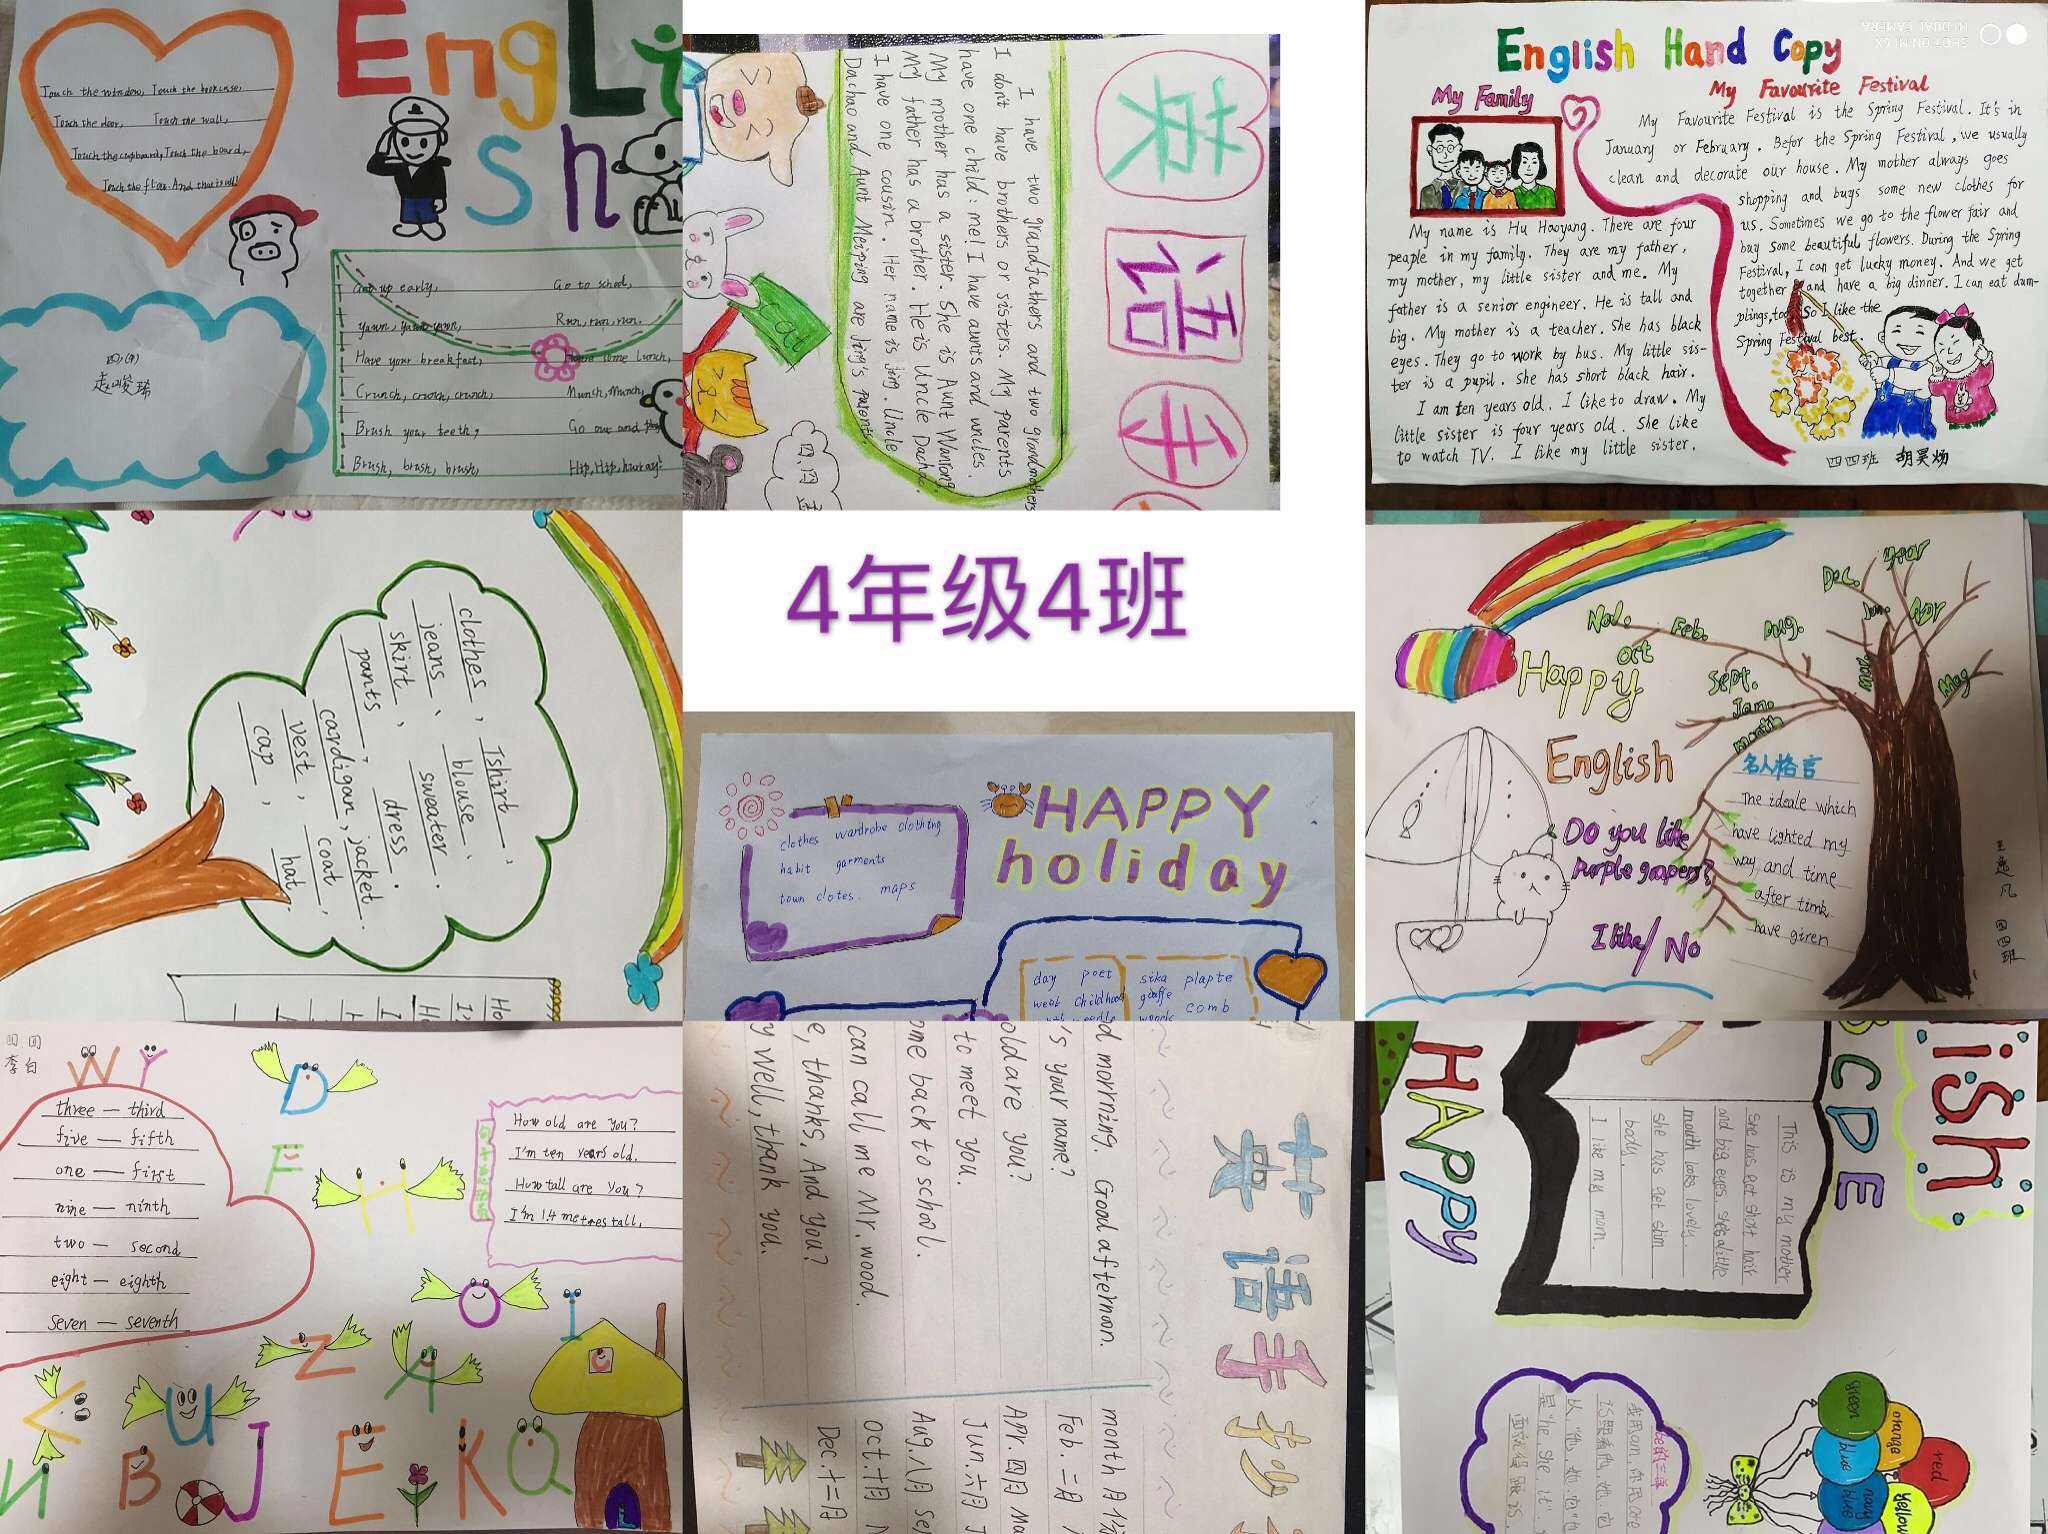 English
Touch the window, Touch the bookcase,
Touch the door, Touch the wall,
Touch the cupboard, Touch the board,
Touch the floor. And that is all!
Get up early, Go to school,
yawn, yawn, yawn, Run, run, run.
Have your breakfast, Have some lunch,
Crunch, crunch, crunch, Munch, Munch,
Brush your teeth, Go out and play
Brush, brush, brush, Hip, Hip, hurray!
英语手
I have two grandfathers and two grandmothers
I don't have brothers or sisters. My parents
have one child: me! I have aunts and uncles.
My mother has a sister. She is Aunt Wanfong.
My father has a brother. He is Uncle Dachao.
I have one cousin. Her name is jing. Uncle
Dachao and Aunt Meiping are Jing's parents.
SHOT ON MI 6X
MI DUAL CAMERA
English Hand Copy
My Family
My name is Hu Haoyang. There are four
peaple in my family. They are my father,
my mother, my little sister and me. My
father is a senior engineer. He is tall and
big. My mother is a teacher. She has black
eyes. They go to work by bus. My little sis-
ter is a pupil. She has short black hair.
I am ten years old. I like to draw. My
little sister is four years old. She like
to watch TV. I like my little sister.
My Favourite Festival
My Favourite Festival is the Spring Festival. It's in
January or February. Befor the Spring Festival, we usually
clean and decorate our house. My mother always goes
shopping and buys some new clothes for
us. Sometimes we go to the flower fair and
buy some beautiful flowers. During the Spring
Festival, I can get lucky money. And we get
together and have a big dinner. I can eat dum-
plings, too. So I like the
Spring Festival best.
四四班 胡昊炀
clothes, Tshirt,
jeans, blouse,
skirt, sweater.
pants, dress.
cardigan, jacket.
vest, coat,
cap, hat.
4年级4班
HAPPY
holiday
clothes wardrobe clothing
habit garments
town clotes. maps
day poet
west childhood
sika plapte
giraffe comb
Happy
English
Do you like
purple grapers?
I like/No
year
Dec.
Nov.
Feb.
Aug.
Oct
Sept.
Jan.
month
名人格言
The ideale which
have lighted my
way, and time
after timk
have giren
王逸凡 四四班
四四
李白
W Y
three — third
five — fifth
one — first
nine — ninth
two — second
eight — eighth
seven — seventh
D
F
H
O
I
Z
A
U
B J E K Q
How old are you?
I'm ten years old.
How tall are you?
I'm 1.4 metres tall.
英语手抄
d morning. Good afternoon.
's your name?
old are you?
to meet you.
ome back to school.
can call me Mr. wood.
e, thanks. And you?
y well, thank you.
month 月份
Feb. 二月
Apr. 四月
Jun. 六月
Aug. 八月
Oct 十月
Dec 十二月
ish
BCDE
HAPPY
This is my mother
she has got short hair
and big eyes
mouth looks lovely.
she has got slim
body.
I like my mom.
green
orange
red
blue
navy
blue
yellow